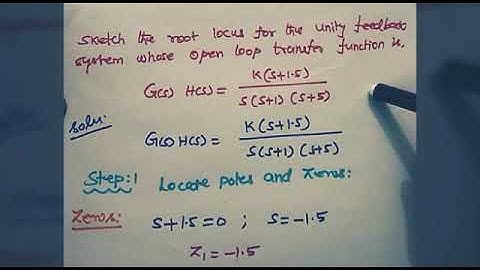 Sketch the root locus for the unity feedback
system whose open loop transfer function is,
G(s) H(s) = K(S+1.5) / S(S+1) (S+5)
Soln:
G(s) H(s) = K(S+1.5) / S(S+1) (S+5)
Step:1 Locate poles and Zeros:
Zeros: S+1.5=0 ; S=-1.5
Z₁ = -1.5